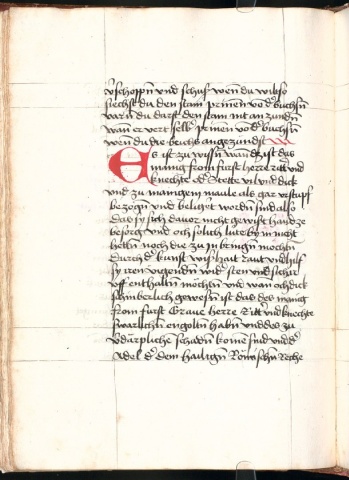 v̄schoppn̄ vnd schuß wen du wilt so
siechst du den stam prinen vō dˢ buchsn̄
warn̄ du darst den stam nit an zundn̄
wan er vert selbˢ prinen vō dˢ buchsn̄
wen du die buchs angezundst
Es ist zu wissn̄ wan dz ist das
manig from fürst herre ritt vnd
knechte vn̄ Stette vil vnd dick
vnd zu manigen maale als gar
bezogn̄ vnd beligert wordn̄ sind als
das sy sich dauor nicht gewist hand ze
besorg vnd och solich lute by in nicht
hettn̄ noch die zu In bringn̄ mochtn̄
durch dˢ kunst wißhait raut vnd hilf
sy iren vigenden widˢ sten vnd sich
vff enthaltn̄ mochtn̄ vnd wan och dick
schinberlich gewesn̄ ist das des manig
from fürst Graue herre Rittˢ vnd knechte
swarlichn̄ engoltn̄ habn̄ vnd des zu
v̄därpliche schadn̄ komē sind vnd dˢ
Adel dˢ dem hailign̄ Römischn̄ Reche